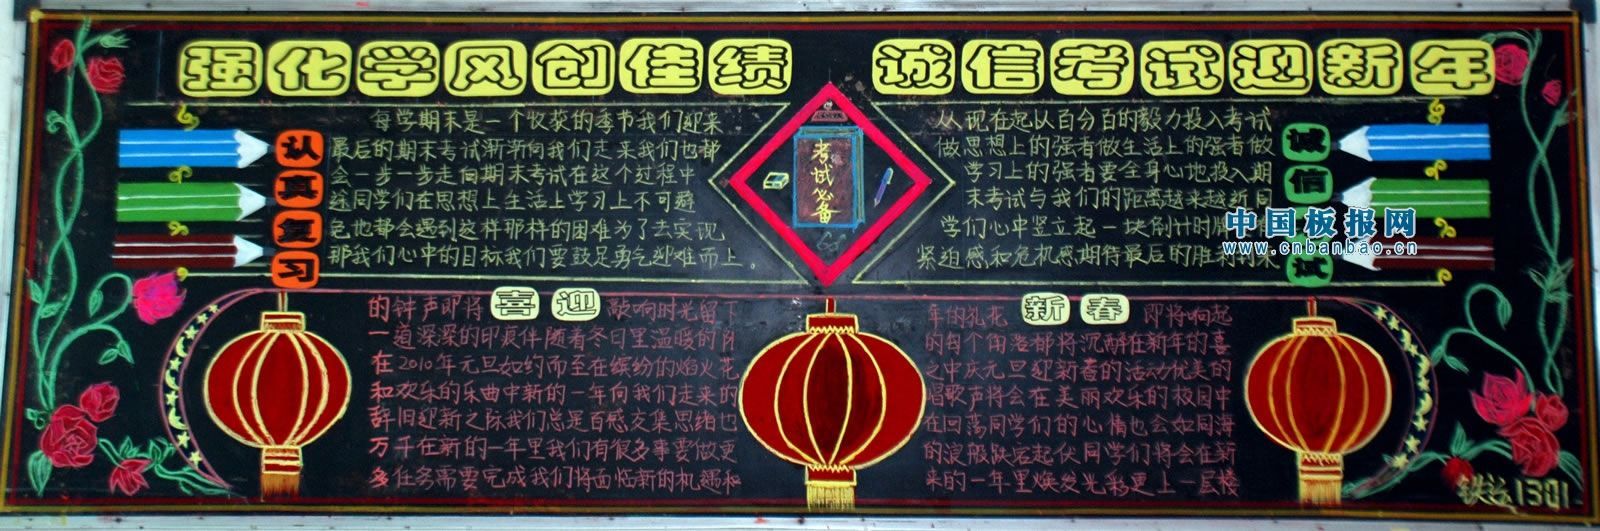 强化学风创佳绩 诚信考试迎新年
认真复习
每学期末是一个收获的季节我们迎来
最后的期末考试渐渐向我们走来我们也都
会一步一步走向期末考试在这个过程中
同学们在思想上生活上学习上不可避
也都会遇到这样那样的困难为了去实现
那我们心中的目标我们要鼓足勇气迎难而上。
考试必备
从现在起以百分百的毅力投入考试
做思想上的强者做生活上的强者做
学习上的强者要全身心地投入期
末考试与我们的距离越来越近同
学们心中竖立起一块倒计时牌
紧迫感和危机感期待最后的胜利到来
诚信 试
中国板报网
www.cnbanbao.cn
喜迎
的钟声即将 敲响时光留下
一道深深的印痕伴随着冬日里温暖的
在2010年元旦如约而至在缤纷的焰火花
和欢乐的乐曲中新的一年向我们走来的
辞旧迎新之际我们总是百感交集思绪也
万千在新的一年里我们有很多事要做更
多任务需要完成我们将面临新的机遇和
新春
年的礼花 即将响起
的每个角落都将沉醉在新年的喜
之中庆元旦迎新春的活动优美的
唱歌声将会在美丽欢乐的校园中
在回荡同学们的心情也会如同海
的浪般跌宕起伏同学们将会在新
来的一年里焕发光彩更上一层楼
铁运1301